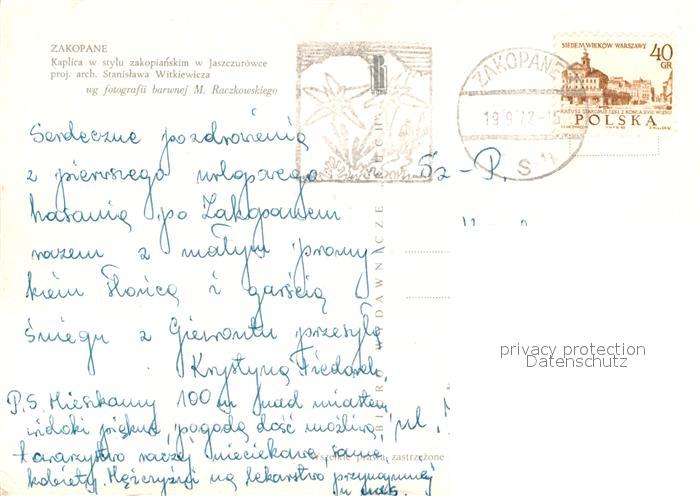 ZAKOPANE
Kaplica w stylu zakopiańskim w Jaszczurówce
proj. arch. Stanisława Witkiewicza
wg fotografii barwnej M. Raczkowskiego
SIEDEM WIEKÓW WARSZAWY
40
GR
POLSKA
ZAKOPANE
19.9.72-15
Sh
Serdeczne pozdrowienia
z pierwszego urlopowego
hasania po Zakopanem
razem z małym promy-
kiem słońca i garścią
śniegu z Giewontu przesyła
Krystyna
P.S. Mieszkamy 100 m nad miastem,
widoki piękne, pogoda dość możliwa,
towarzystwo raczej nieciekawe, same
kobiety. Mężczyźni na lekarstwo przynajmniej
u nas.
Sz-P.
ul
BIURO WYDAWNICZE RUCH
Wszelkie prawa zastrzeżone
privacy protection
Datenschutz